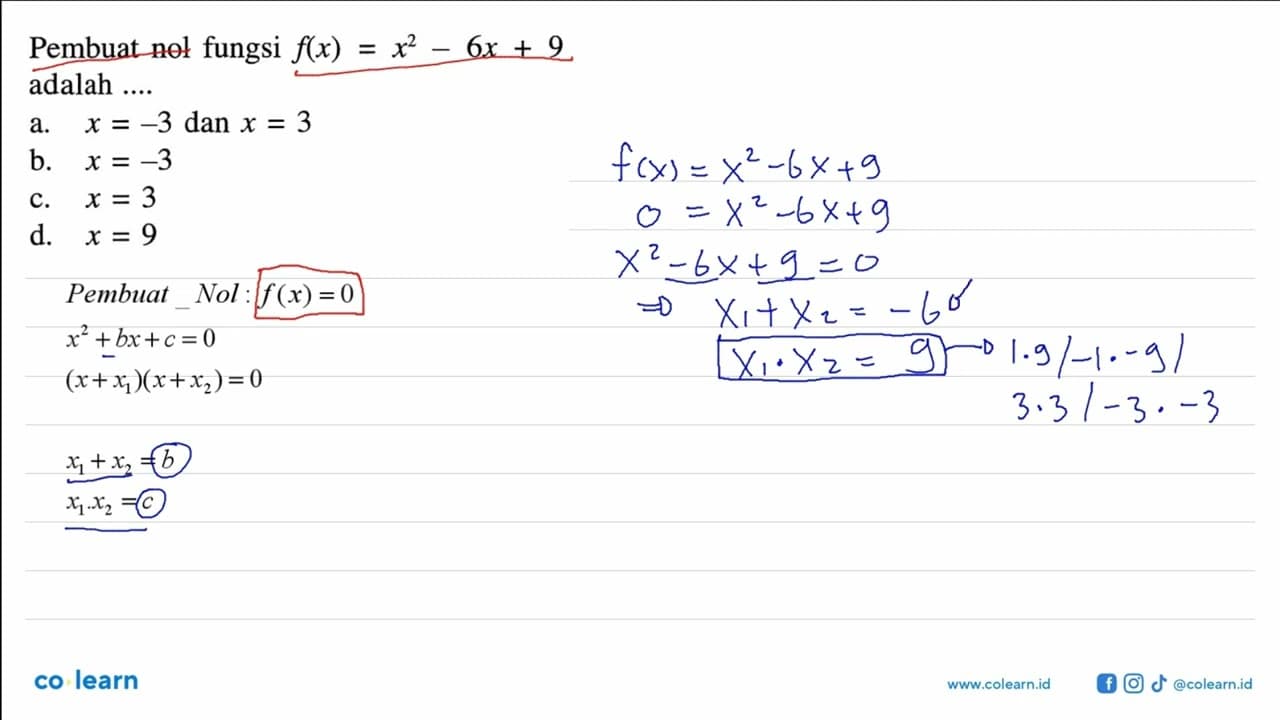 Pembuat nol fungsi f(x) = x² – 6x + 9
adalah ....
a. x = –3 dan x = 3
b. x = –3
c. x = 3
d. x = 9
Pembuat _ Nol : f(x) = 0
x² + bx + c = 0
(x + x₁)(x + x₂) = 0
x₁ + x₂ = b
x₁.x₂ = c
f(x) = x² - 6x + 9
0 = x² - 6x + 9
x² - 6x + 9 = 0
⇒ x₁ + x₂ = -6
x₁ · x₂ = 9 → 1.9 / -1 . -9 /
3.3 / -3 . -3
co learn
www.colearn.id
@colearn.id